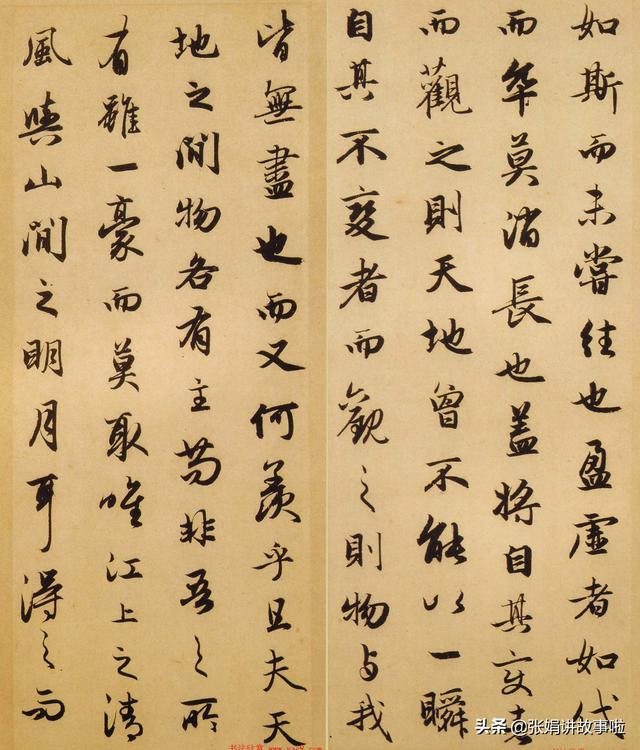 如斯而未嘗往也盈虛者如代
而卒莫消長也蓋將自其變者
而觀之則天地曾不能以一瞬
自其不變者而觀之則物与我
皆無盡也而又何羨乎且夫天
地之間物各有主苟非吾之所
有雖一豪而莫取唯江上之清
風與山間之明月耳得之而
头条 @张娟讲故事啦
书法欣赏